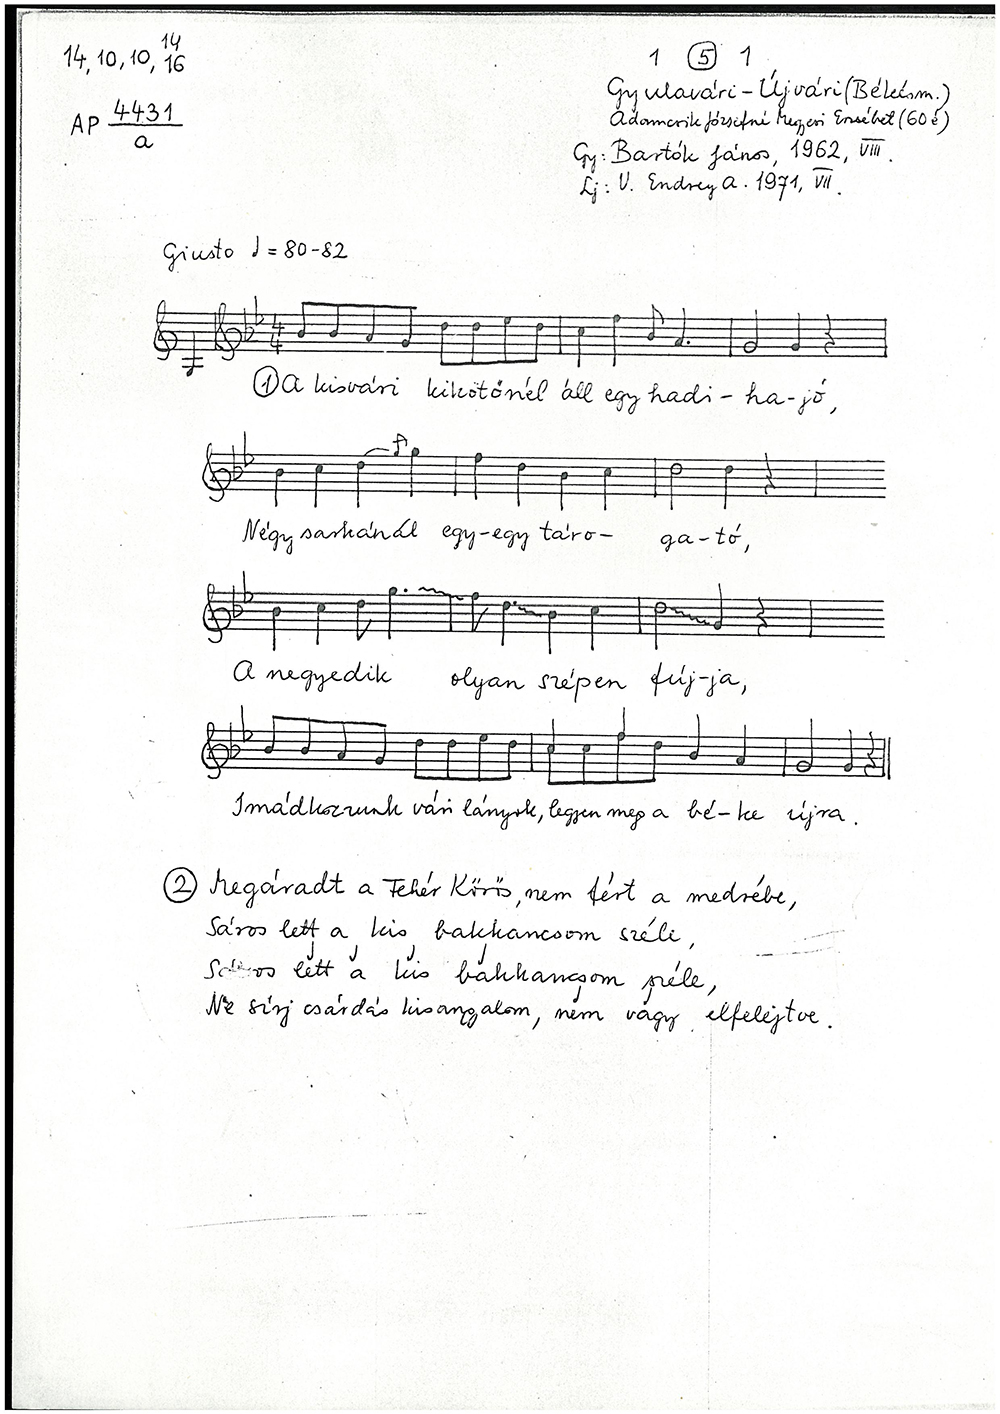 14, 10, 10, 14
16
1 5 1
AP 4431
a
Gyulavári-Újvári (Békésm.)
Adamcsik Józsefné Megyeri Erzsébet (60 é)
Gy: Bartók János, 1962, VIII.
Lj: V. Endrey A. 1971, VII.
Giusto ♩ = 80-82
4
4
① A kisvári kikötőnél áll egy hadi-ha-jó,
Négy sarkánál egy-egy táro- ga-tó,
A negyedik olyan szépen fúj-ja,
Imádkozzunk vári lányok, legyen meg a bé-ke újra.
② Megáradt a Fehér Körös, nem fért a medrébe,
Sáros lett a kis bakkancsom széle,
Sáros lett a kis bakkancsom széle,
Ne sírj csárdás kisangalom, nem vagy elfelejtve.